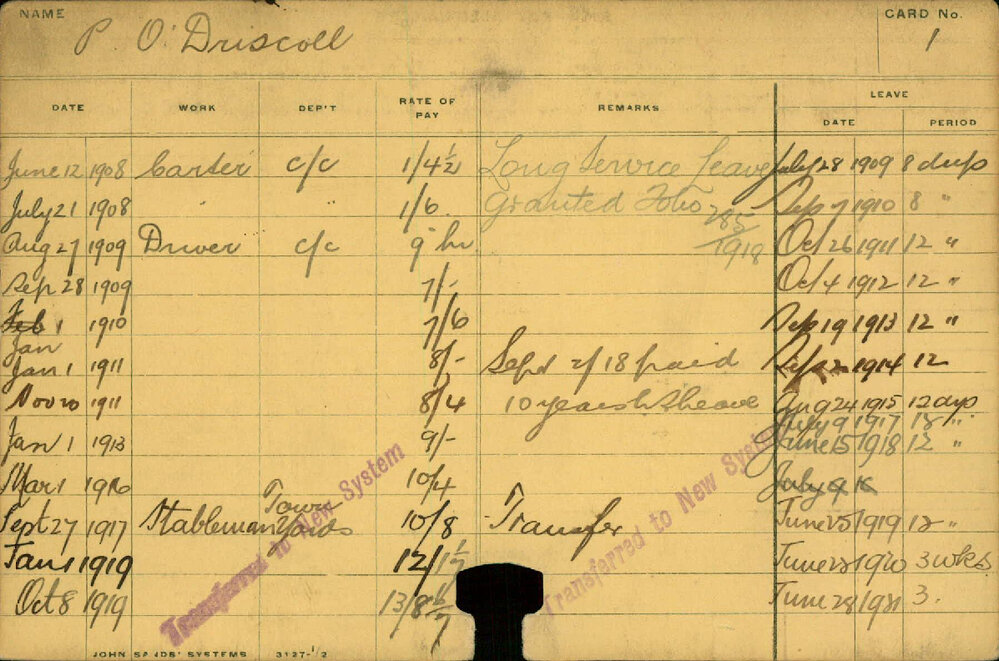 NAME CARD No.
P O'Driscoll 1
DATE WORK DEP'T RATE OF PAY REMARKS LEAVE
DATE PERIOD
June 12 1908 Carter c/c 1/4½ Long Service Leave July 28 1909 8 days
July 21 1908 " 1/6 Granted Folio 285/1918 Sep 7 1910 8 "
Aug 27 1909 Driver c/c 9" hr Oct 26 1911 12 "
Sep 28 1909 7/- Oct 4 1912 12 "
Feb 1 1910 7/6 Sep 19 1913 12 "
Jan
Jan 1 1911 8/- Sept 2/18 paid 1914 12
Nov 20 1911 8/4 10 years Aug 24 1915 12 days
July 9 1917 12 "
Jan 1 1913 9/- June 15 1918 12 "
Mar 1 1916 10/4 July 9
Sept 27 1917 Stableman Town Yards 10/8 Transfer June 25 1919 12 "
Jan 1 1919 12/1 June 28 1920 3 wks
Oct 8 1919 13/8 June 28 1921 3.
Transferred to New System
Transferred to New System
JOHN SANDS' SYSTEMS 3127-1/2